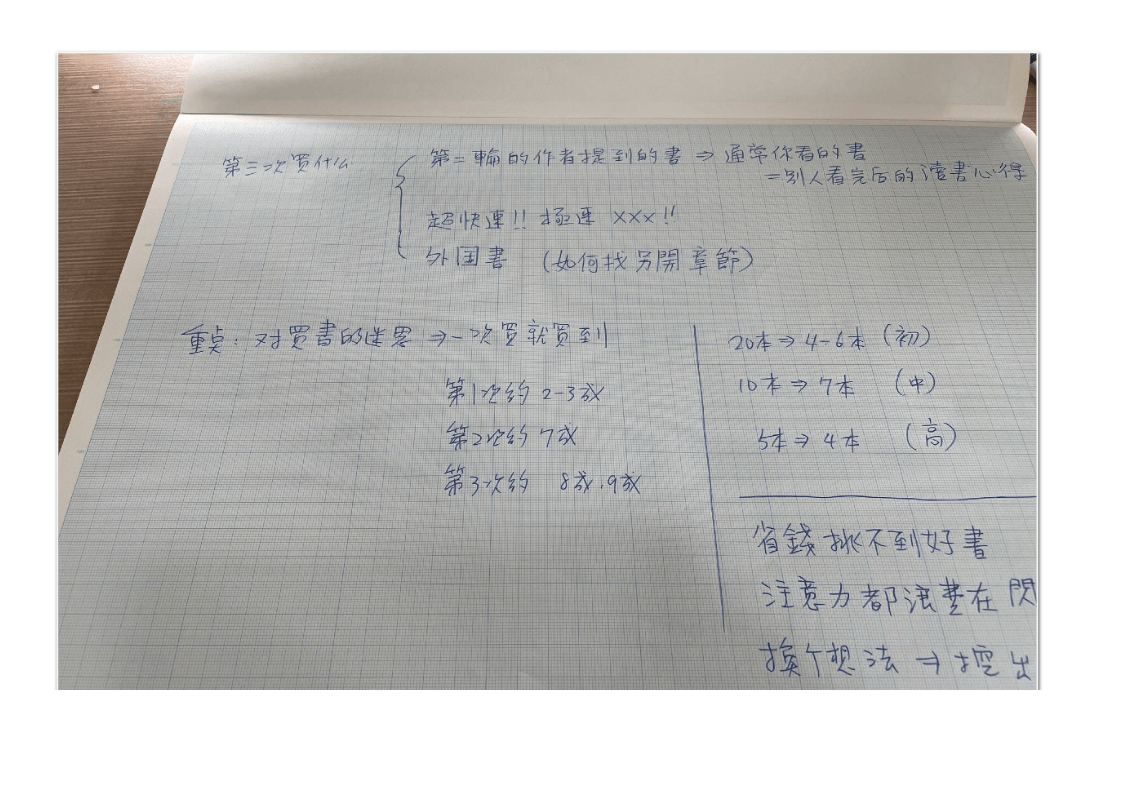 第三次買什么
第二輪的作者提到的書 ⇒ 通常你看的書
=别人看完后的讀書心得
超快速!! 極速 XXX!!
外国書 (如何找另開章節)
重点: 对買書的迷思 ⇒ 一次買就買到
第1次約 2-3成
第2次約 7成
第3次約 8成.9成
20本 ⇒ 4-6本 (初)
10本 ⇒ 7本 (中)
5本 ⇒ 4本 (高)
省錢挑不到好書
注意力都浪費在閃
換个想法 ⇒ 挖出